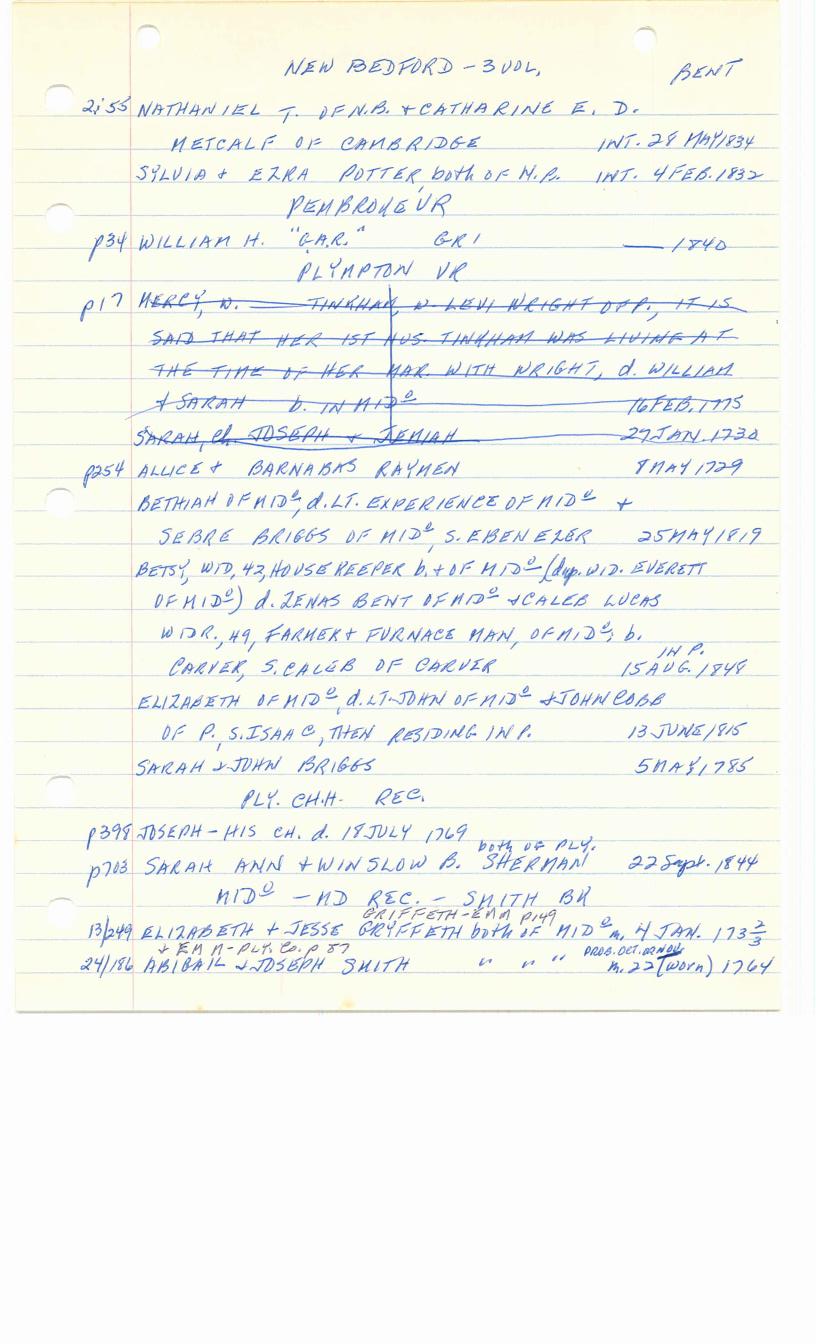 NEW BEDFORD - 3 VOL.    BENT
2:55 NATHANIEL T. OF N.B. + CATHARINE E. D.
METCALF OF CAMBRIDGE    INT. 28 MAY 1834
SYLVIA + EZRA POTTER, both OF N.B.    INT. 4 FEB. 1832
PEMBROKE VR
p34 WILLIAM H. "G.A.R." GR1    — 1840
PLYMPTON VR
p17 MERCY, W. — TINKHAM, W. LEVI WRIGHT OF P., IT IS
SAID THAT HER 1ST HUS. TINKHAM WAS LIVING AT
THE TIME OF HER MAR. WITH WRIGHT, d. WILLIAM
+ SARAH b. IN MIDº    16 FEB. 1775
SARAH, ch. JOSEPH +    27 JAN. 1730
p254 ALLICE + BARNABAS RAYMEN    8 MAY 1729
BETHIAH OF MIDº, d. LT. EXPERIENCE OF MIDº +
SEBRE BRIGGS OF MIDº, S. EBENEZER    25 MAY 1819
BETSY, WID, 42, HOUSE KEEPER b. + OF MIDº (dup. WID. EVERETT
OF MIDº) d. ZENAS BENT OF MIDº + CALEB LUCAS
WIDR., 49, FARMER + FURNACE MAN, OF MIDº, b.
IN P.
CARVER, S. CALEB OF CARVER    15 AUG. 1848
ELIZABETH OF MIDº, d. LT. JOHN OF MIDº + JOHN COBB
OF P., S. ISAAC, THEN RESIDING IN P.    13 JUNE 1815
SARAH + JOHN BRIGGS    5 MAY 1785
PLY. CH.H. REC.
p398 JOSEPH - HIS CH. d. 18 JULY 1769
both OF PLY.
p703 SARAH ANN + WINSLOW B. SHERMAN    22 Sept. 1844
MIDº - MD REC. - SMITH BK
GRIFFETH - EMM p149
13/249 ELIZABETH + JESSE GRYFFETH both OF MIDº m. 4 JAN. 173 2/3
+ EMM - PLY. Co. p 87    PROB. OCT. OR NOV.
24/186 ABIGAIL + JOSEPH SMITH " " " m. 22 (worn) 1764